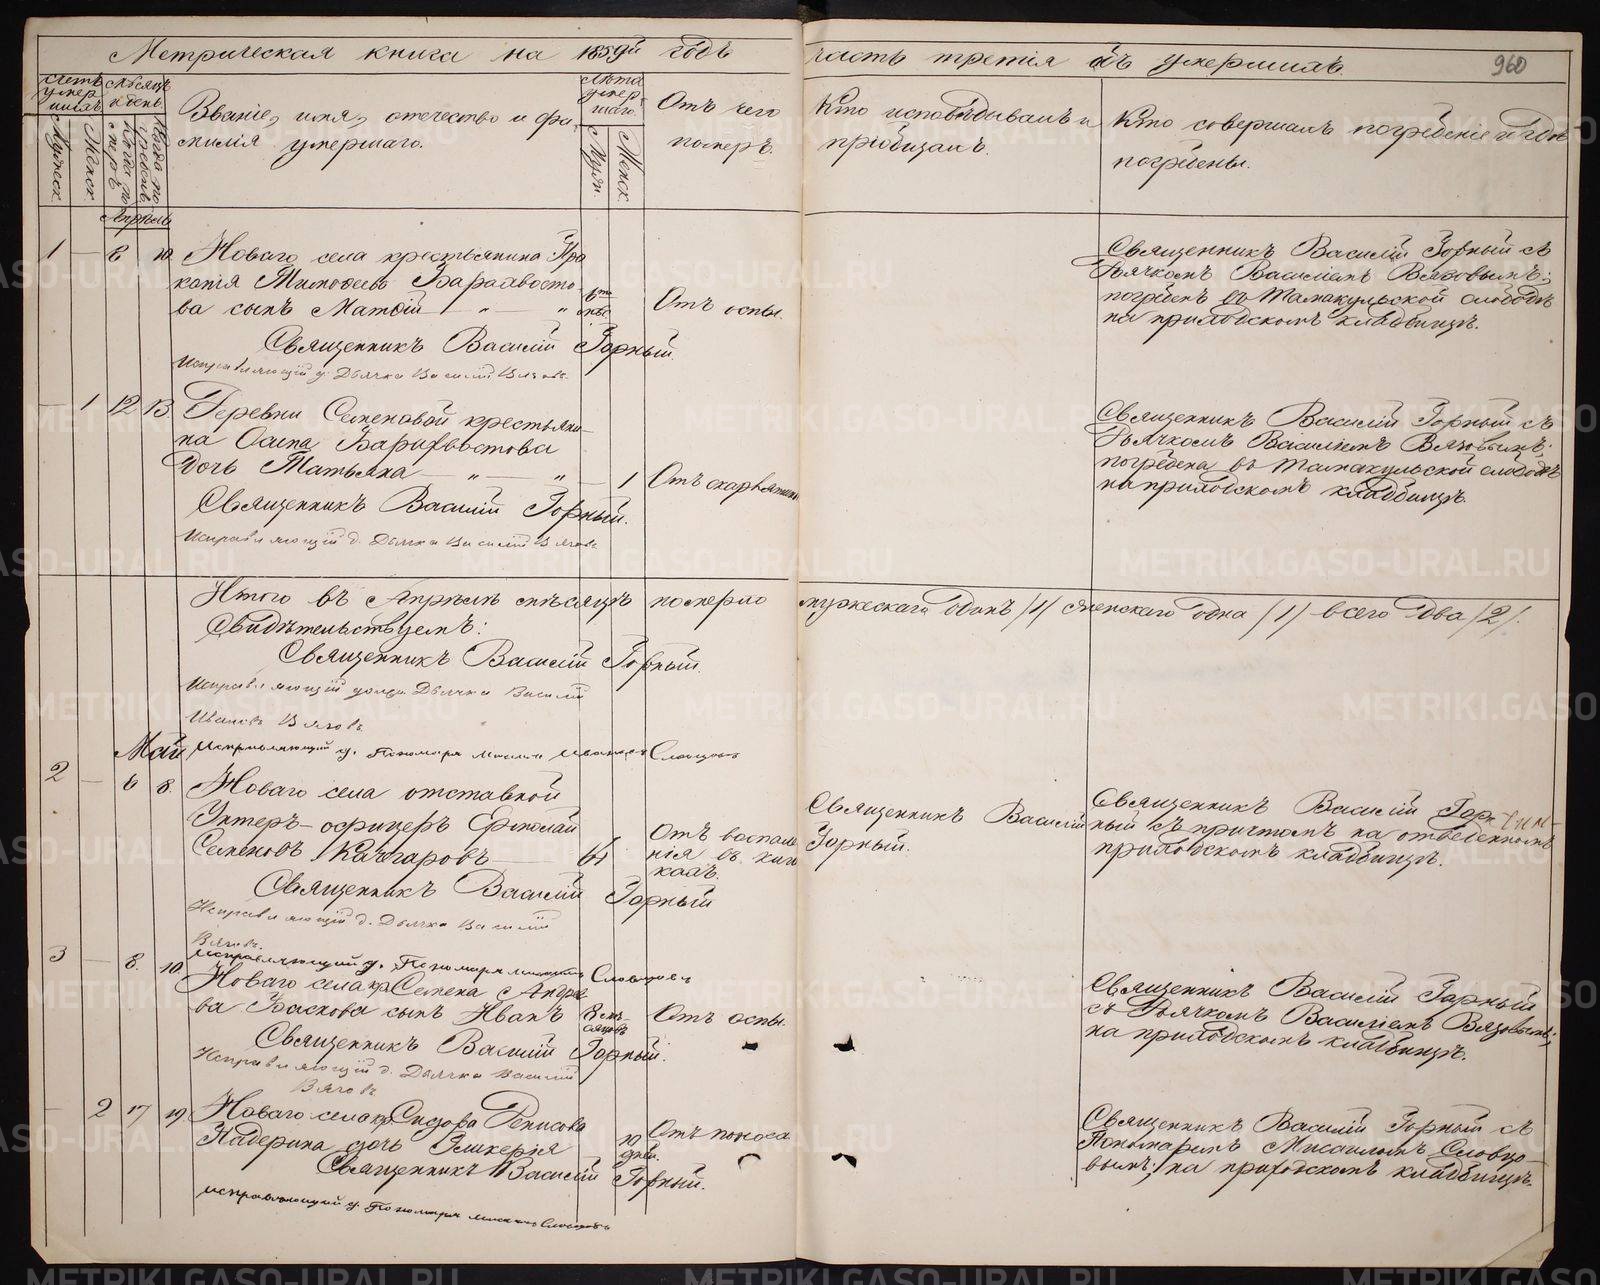 Метрическая книга на 1859й годъ часть третія о умершихъ
960
Счетъ умершихъ
Мѣсяцъ и день
Мужеск.
Женск.
Званіе, имя, отечество и фамилія умершаго.
Лѣта умершаго.
Мужи.
Женск.
Отъ чего померъ.
Кто исповѣдывалъ и пріобщалъ.
Кто совершалъ погребеніе и гдѣ погребены.
Апрѣль
1 — 8 10 Новаго села крестьянина Про
копія Тимоѳеева
ва сынъ Матѳій — „ — „
Отъ оспы.
Священникъ Василій Горный съ
Дьячкомъ Василіемъ Вяговымъ;
погребенъ въ Тамакульской слободѣ
на приходскомъ кладбищѣ.
Священникъ Василій Горный.
Исправляющій д. Дьячка Василій Вяговъ
— 1 12 13. Деревни Семеновой крестьяни-
на Осипа
дочь Татьяна — „ — „ — 1 Отъ скарлатины
Священникъ Василій Горный съ
Дьячкомъ Василіемъ Вяговымъ;
погребена въ Тамакульской слободѣ
на приходскомъ кладбищѣ.
Священникъ Василій Горный.
Исправляющій д. Дьячка Василій Вяговъ
Итого въ Апрѣлѣ мѣсяцѣ померло мужескаго одинъ /1/ женскаго одна /1/ всего два /2/.
Свидѣтельствуемъ:
Священникъ Василій Горный.
Исправляющій должн. Дьячка Василій
Ивановъ Вяговъ.
Исправляющій д. Пономаря Ивановъ Словцовъ
Май
2 — 6 8. Новаго села отставной
Унтеръ-офицеръ
Семеновъ — 61
Отъ воспале
нія въ киш
кахъ.
Священникъ Василій
Горный.
Священникъ Василій Гор-
ный съ причтомъ на отведенномъ
приходскомъ кладбищѣ.
Священникъ Василій Горный
Исправляющій д. Дьячка Василій
Вяговъ.
Исправляющій д. Пономаря Словцовъ
3 — 8. 10. Новаго села кр. Семена Андре
ва Баскова сынъ Иванъ 8 мѣ-
сяцовъ Отъ оспы.
Священникъ Василій Горный
съ Дьячкомъ Василіемъ Вяговымъ;
на приходскомъ кладбищѣ.
Священникъ Василій Горный.
Исправляющій д. Дьячка Василій
Вяговъ
— 2 17 19. Новаго села кр. Сидора Денисова
Падерина дочь Гликерія 10
дней. Отъ поноса
Священникъ Василій Горный съ
Пономаремъ Мисаиломъ Словцо-
вымъ; на приходскомъ кладбищѣ.
Священникъ Василій Горный.
Исправляющій д. Пономаря Словцовъ
METRIKI.GASO-URAL.RU